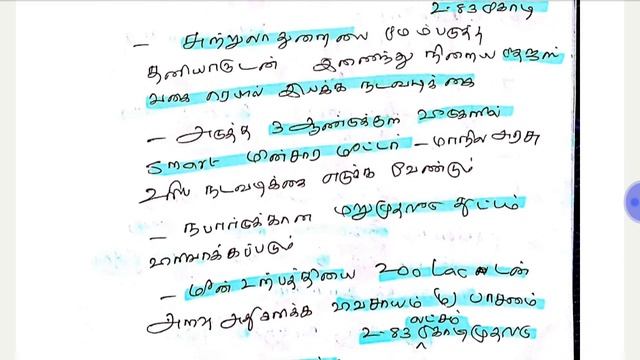 2.83 கோடி
- சுற்றுலா துறையை மேம்படுத்த
தனியாருடன் இணைந்து நிறைய தேஜஸ்
வகை ரெயில் இயக்க நடவடிக்கை
- அடுத்த 3 ஆண்டுக்குள் வீடுகளில்
Smart மின்சார மீட்டர் - மாநில அரசு
உரிய நடவடிக்கை எடுக்க வேண்டும்
- நபார்டுக்கான மறுமுதலீடு திட்டம்
விரிவாக்கப்படும்
- மீன் உற்பத்தியை 200 Lac டன்
அளவு அதிகரிக்க விவசாயம் (ம) பாசனம்
லட்சம்
2.83 கோடி முதலீடு